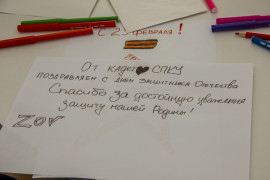 С 23 февраля!
От кадет СПКУ
поздравляем с днём защитника Отечества
Спасибо за достойную уважения
защиту нашей Родины!
ZOV